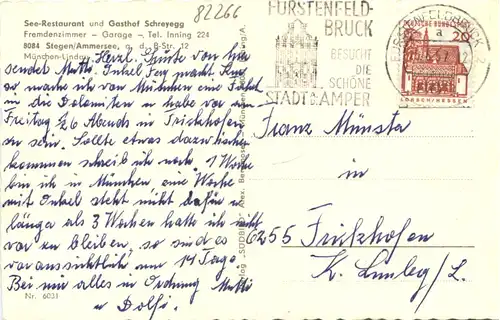 See-Restaurant und Gasthof Schreyegg
Fremdenzimmer – Garage – Tel. Inning 224
8084 Stegen/Ammersee, a. d. B-Str. 12
München-Lindau
82266
FÜRSTENFELD-
BRUCK
BESUCHT
DIE
SCHÖNE
STADT A.D. AMPER
FÜRSTENFELDBRUCK 2
a
DEUTSCHE BUNDESPOST
20
LORSCH/HESSEN
Herzl. Grüße von hier
sendet Mutti. Onkel
so mache ich von München eine Fahrt
in die Dolomiten u habe vor am
Freitag 2/6 Abends in Frickhofen
zu sein. Sollte etwas dazwischen
kommen schreib ich noch. 1 Woche
bin ich in München, eine Woche
mit Onkel steht nicht dafür u
länger als 3 Wochen hatte ich nicht
vor zu bleiben, so sind es
voraussichtlich nur 14 Tage.
Bei uns alles in Ordnung Mutti
u Dolfi.
Nr. 6031
Franz Münster
in
6255 Frickhofen
K. Limbg/L.